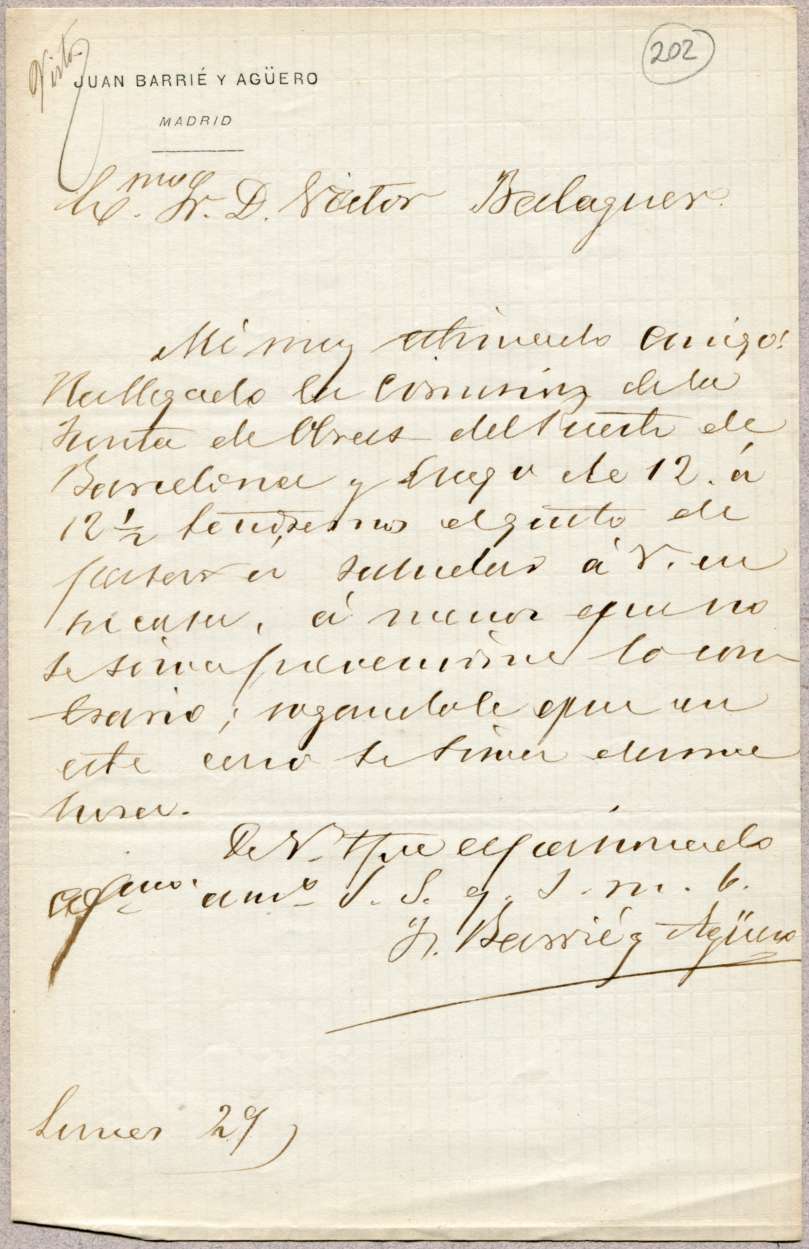 Visto
202
JUAN BARRIÉ Y AGÜERO
MADRID
Exmo Sr. D. Victor Balaguer.
Mi muy estimado amigo:
Ha llegado la Comision de la
Junta de Obras del Puerto de
Barcelona y luego de 12. á
12 1/2 tendremos el gusto de
pasar á saludar á V. en
su casa, á menos que no
se sirva prevenirme lo con
trario; rogandole que en
este caso se sirva darme
hora.
De V. apasionado
affmo. amo S. S. q. s. m. b.
Barrié y Agüero
Lunes 29